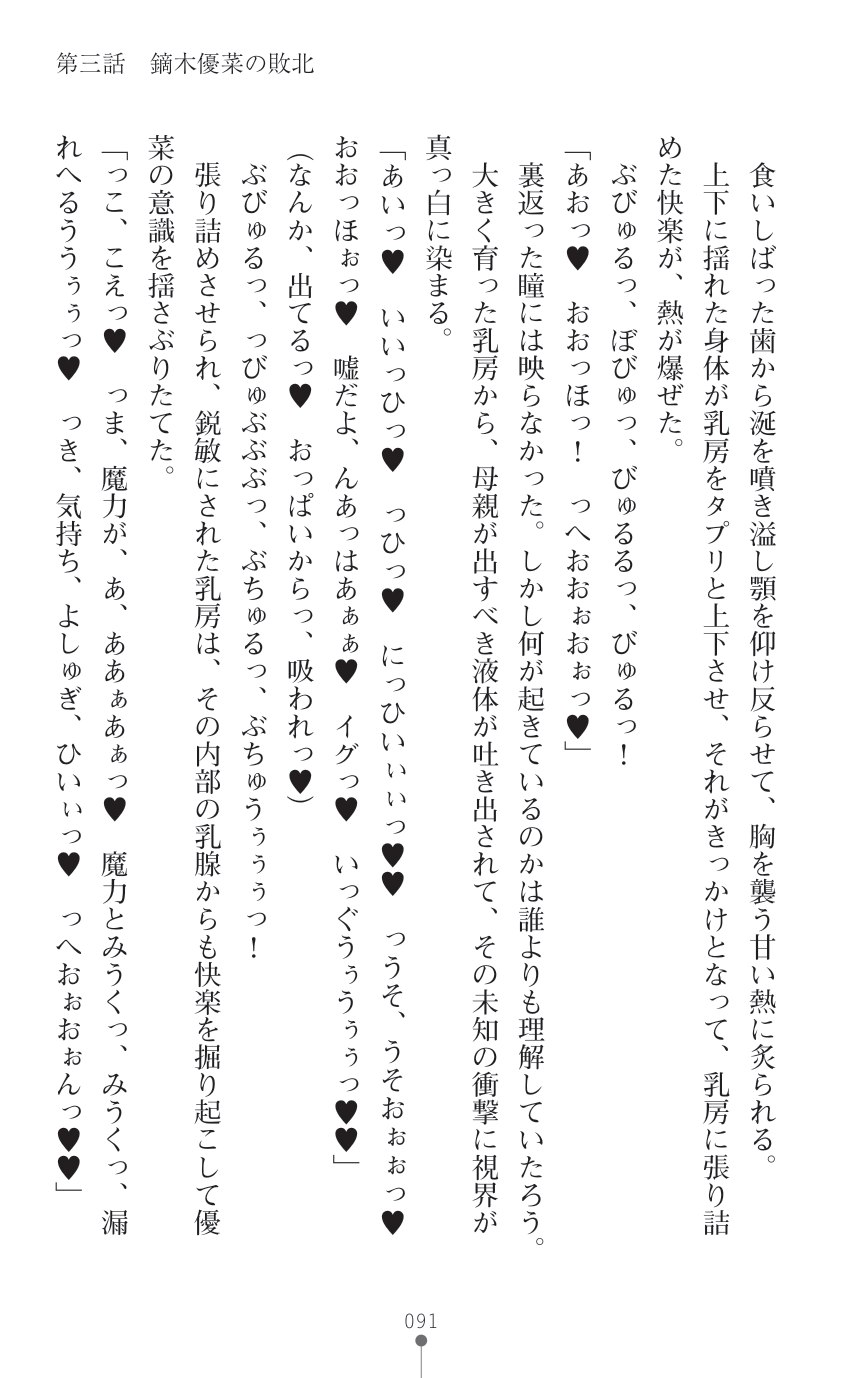 第三話　鏑木優菜の敗北
食いしばった歯から涎を噴き溢し顎を仰け反らせて、胸を襲う甘い熱に炙られる。
上下に揺れた身体が乳房をタプリと上下させ、それがきっかけとなって、乳房に張り詰
めた快楽が、熱が爆ぜた。
ぶびゅるっ、ぼびゅっ、びゅるるっ、びゅるっ！
「あおっ♥　おおっほっ！　っへおおぉおぉっ♥」
裏返った瞳には映らなかった。しかし何が起きているのかは誰よりも理解していたろう。
大きく育った乳房から、母親が出すべき液体が吐き出されて、その未知の衝撃に視界が
真っ白に染まる。
「あいっ♥　いいっひっ♥　っひっ♥　にっひいぃぃっ♥♥　っうそ、うそおぉぉっ♥
おおっほぉっ♥　嘘だよ、んあっはあぁぁ♥　イグっ♥　いっぐうぅうぅぅっ♥♥」
（なんか、出てるっ♥　おっぱいからっ、吸われっ♥）
ぶびゅるっ、っびゅぶぶぶっ、ぶちゅるっ、ぶちゅうぅぅぅっ！
張り詰めさせられ、鋭敏にされた乳房は、その内部の乳腺からも快楽を掘り起こして優
菜の意識を揺さぶりたてた。
「っこ、こえっ♥　っま、魔力が、あ、ああぁあぁっ♥　魔力とみうくっ、みうくっ、漏
れへるううぅぅっ♥　っき、気持ち、よしゅぎ、ひいぃっ♥　っへおぉおぉんっ♥♥」
091